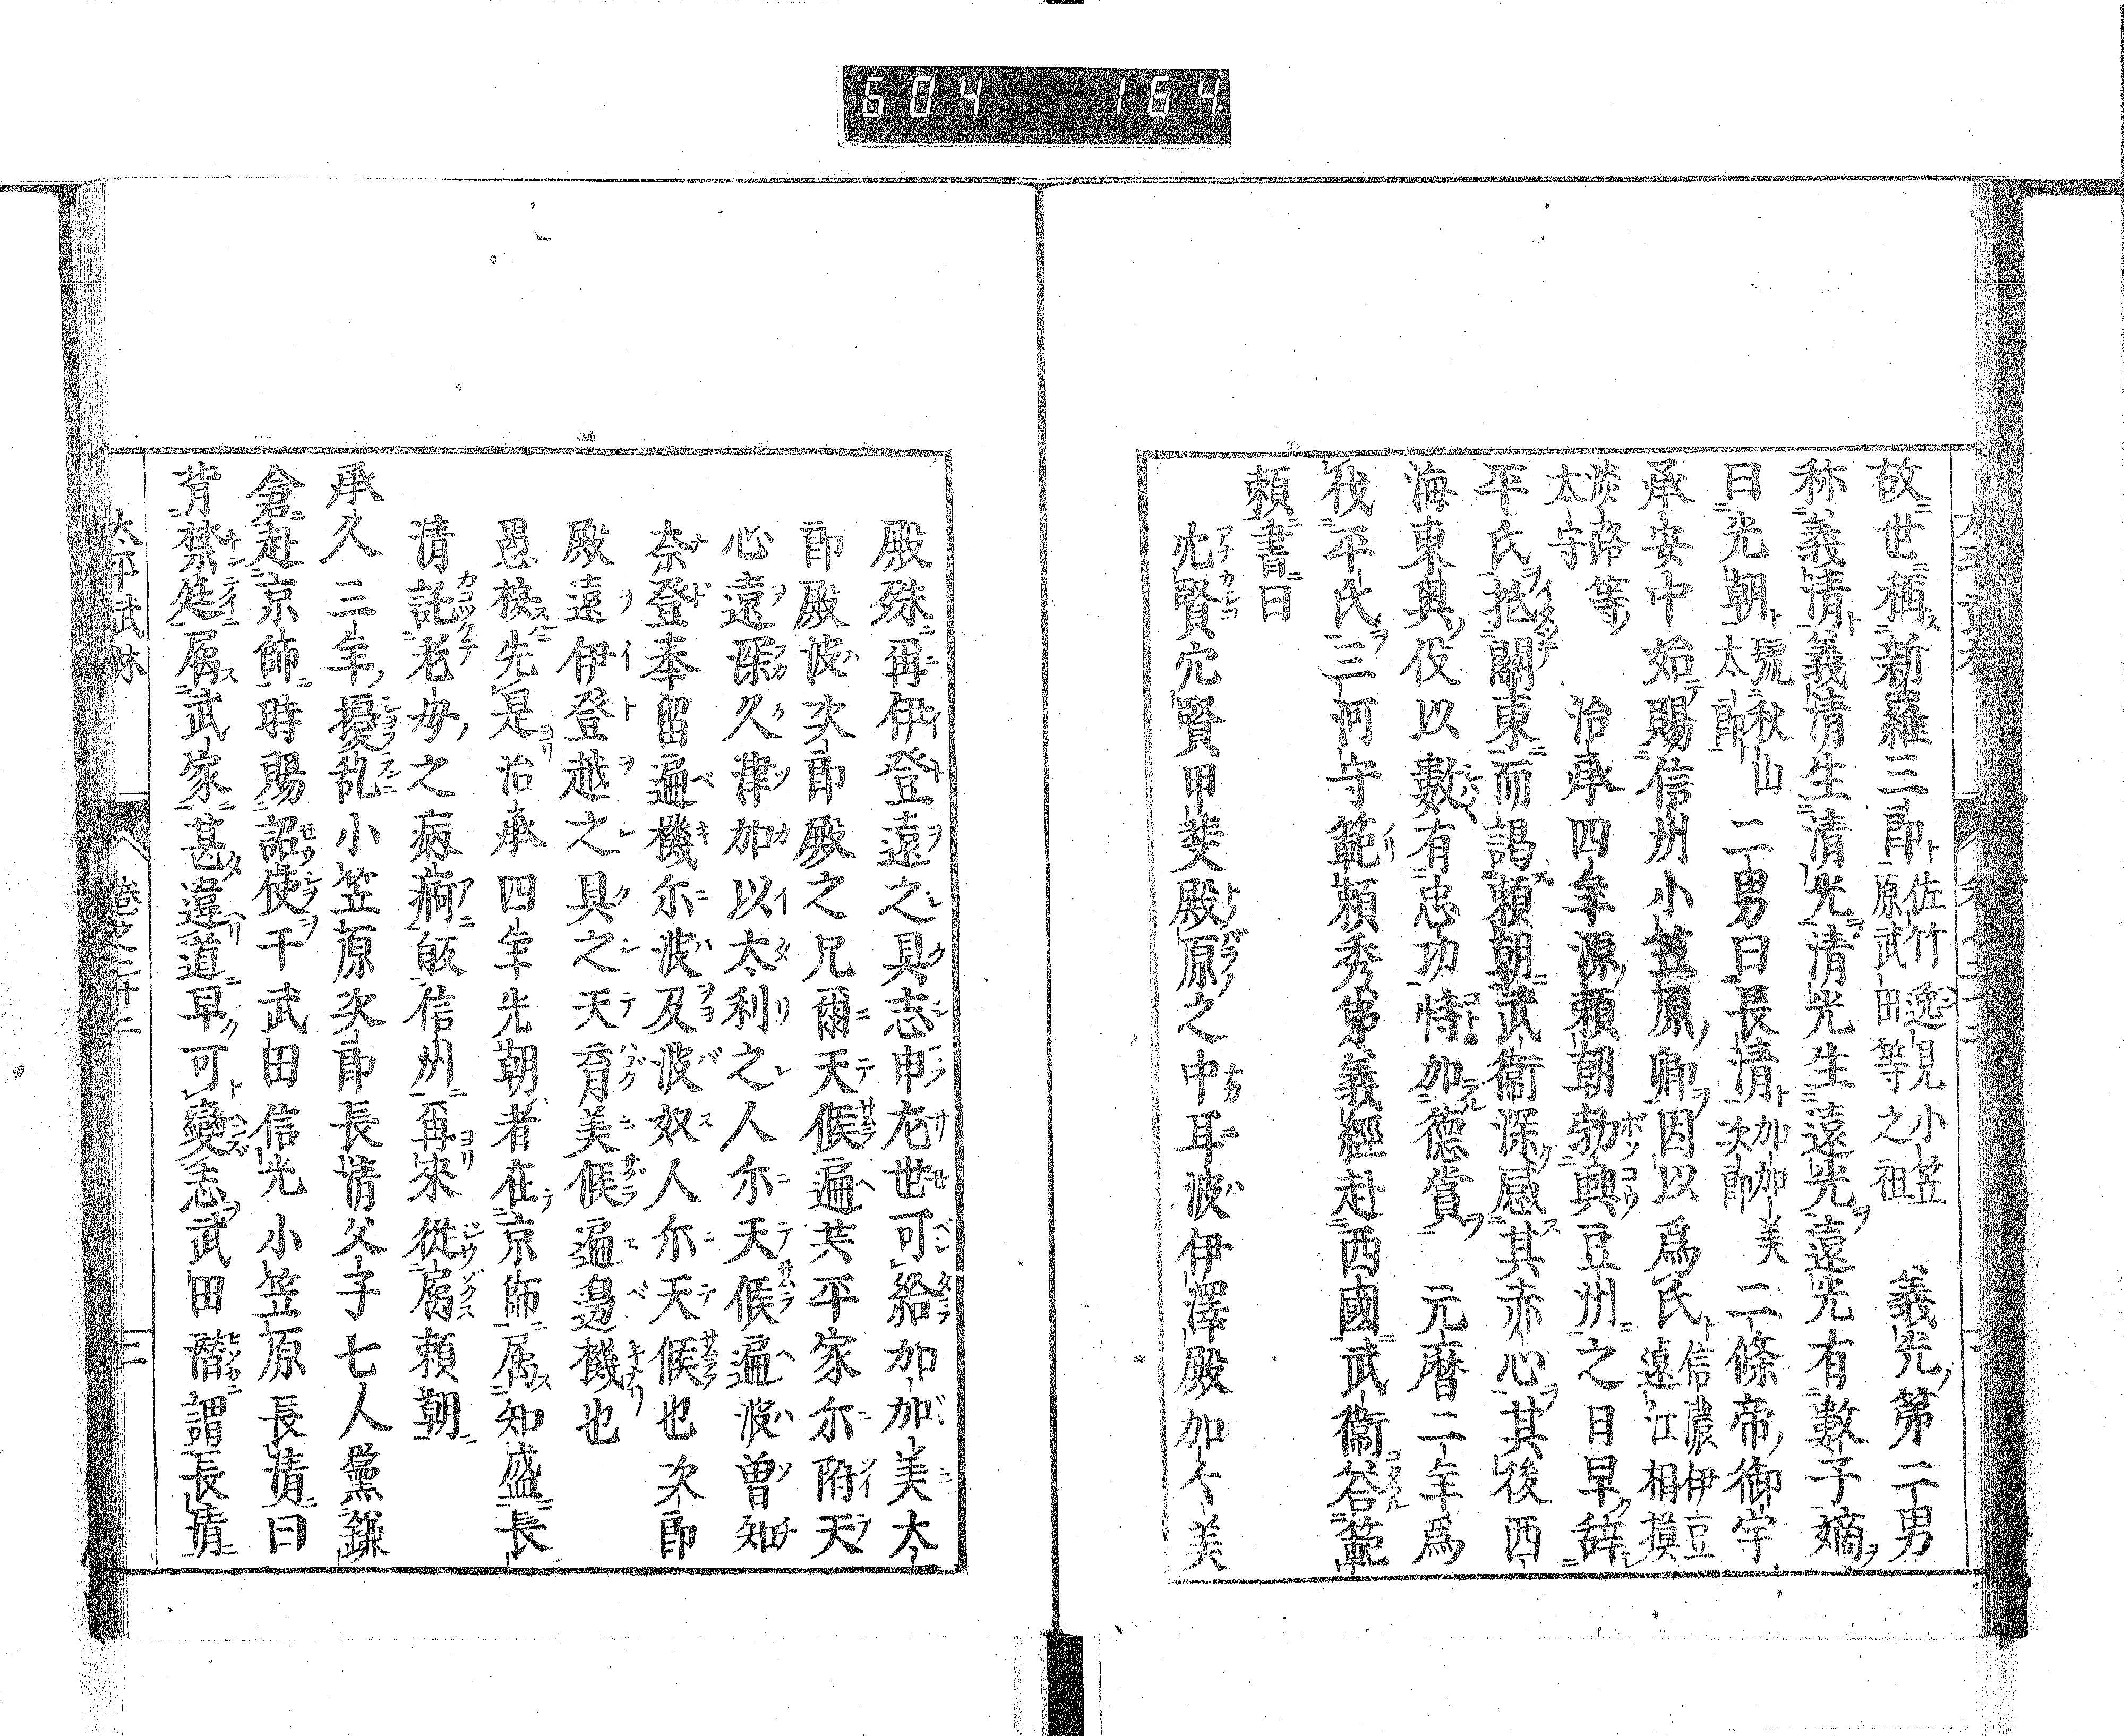 604 164
故世稱新羅三郎佐竹逸見小笠原武田等之祖 義光第二男
称義清義清生清光清光生遠光遠光有數子嫡
曰光朝號秋山太郎 二男曰長清加加美次郎 二條帝御宇
承安中始賜信州小笠原卿因以爲氏信濃伊豆遠江相摸
淡路等太守 治承四年源頼朝勃興豆州之日早辞
平氏抵關東而謁頼朝武衞深感其赤心其後西
海東奥役以數有忠功特加德賞 元暦二年爲
伐平氏三河守範頼秀弟義經赴西國武衞答範
頼書曰
光賢穴賢甲斐殿原之中耳波伊澤殿加々美
殿殊爾伊登遠之具志申左世可給加加美太
郎殿波次郎殿之兄爾天候遍共平家尓附天
心遠深久津加以太利之人尓天候遍波曽知
奈登奉留遍機尓波及波奴人尓天候也次郎
殿遠伊登越之具之天育美候遍邊機也
愚桉先是治承四年光朝者在京師属知盛長
清託老母之病痾皈信州爾來從属頼朝
承久三年擾乱小笠原次郎長清父子七人黨鎌
倉赴京師時賜詔使于武田信光小笠原長清曰
背禁庭属武家甚違道早可變志武田潜謂長清
太平武林 巻之二十二 三